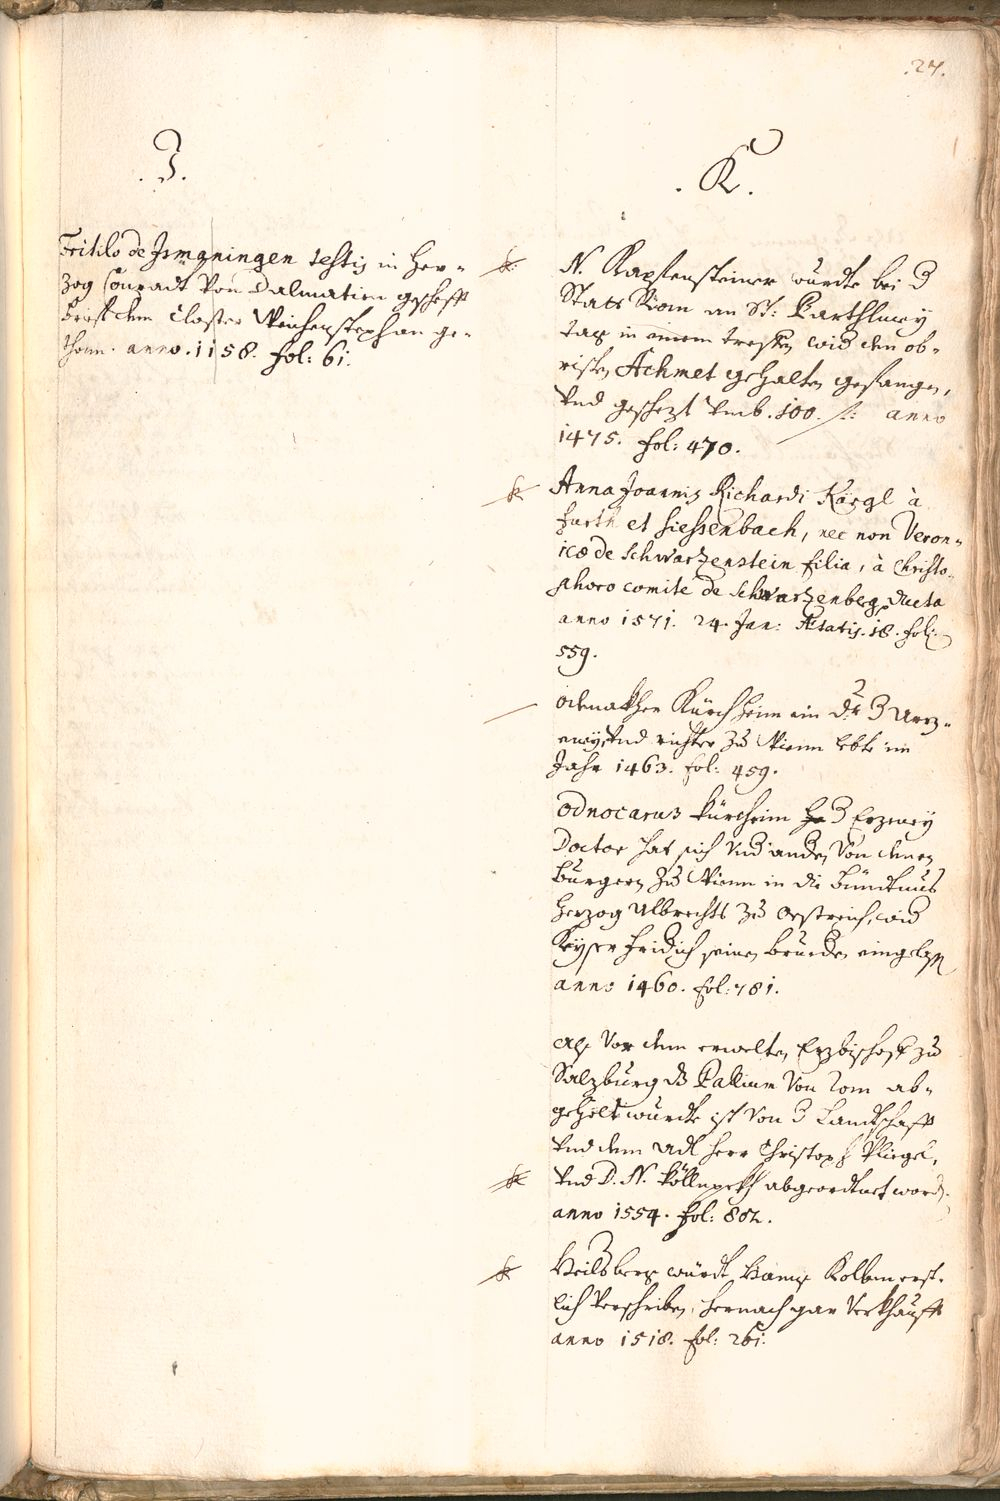 .27.
.J.
Fritilo de Jsmaningen testis in Her-
zog Conradt Von Dalmatien geschefft
brieff dem Closter Weichenstephan ge-
thonn. anno. 1158. fol: 61.
.K.
k N. Kapstensteiner wurdt bei d
Statt Rom an St: Parthlmey
tag in einem treffen wid den ob-
risten Achmet gehalten gefangen,
vnd geschezt vmb. 100. anno
1475. fol: 470.
k Anna Joannis Richardi Kärgl à
furth et Siessenbach, nec non Veron-
icæ de Schwartzenstein filia, à Christo-
phoro comite de Schwartzenberg ducta
anno 1571. 24. Jan: Ætatis. 18. fol:
559.
Kürchheim ein Dr: d Artz-
eney vnd richter zu Wienn lebt im
Jahr 1463. fol: 459.
Odnocarus Kürchheim d Erzeney
Doctor hat sich vnd andere Von denen
burgern zu Wienn in die bündtnus
Herzog Albrechts zu Oestreich, wid
Keyser Fridrich seinen bruedern eingelassen
anno 1460. fol: 781.
Als Vor dem erwelten Erzbischoff zu
Salzburg ds Pallium Von Rom ab-
gehölt wurdte ist Von d Landtschafft
vnd dem Adl herr Christoph Pliegel,
k vnd D. N. Köllnpekh abgeordtnet worden.
anno 1554. fol: 802.
k Heilsberg würdt Hanns Kolbm erst-
lich verschriben, hernach gar Verkhaufft
anno 1518. fol: 261.